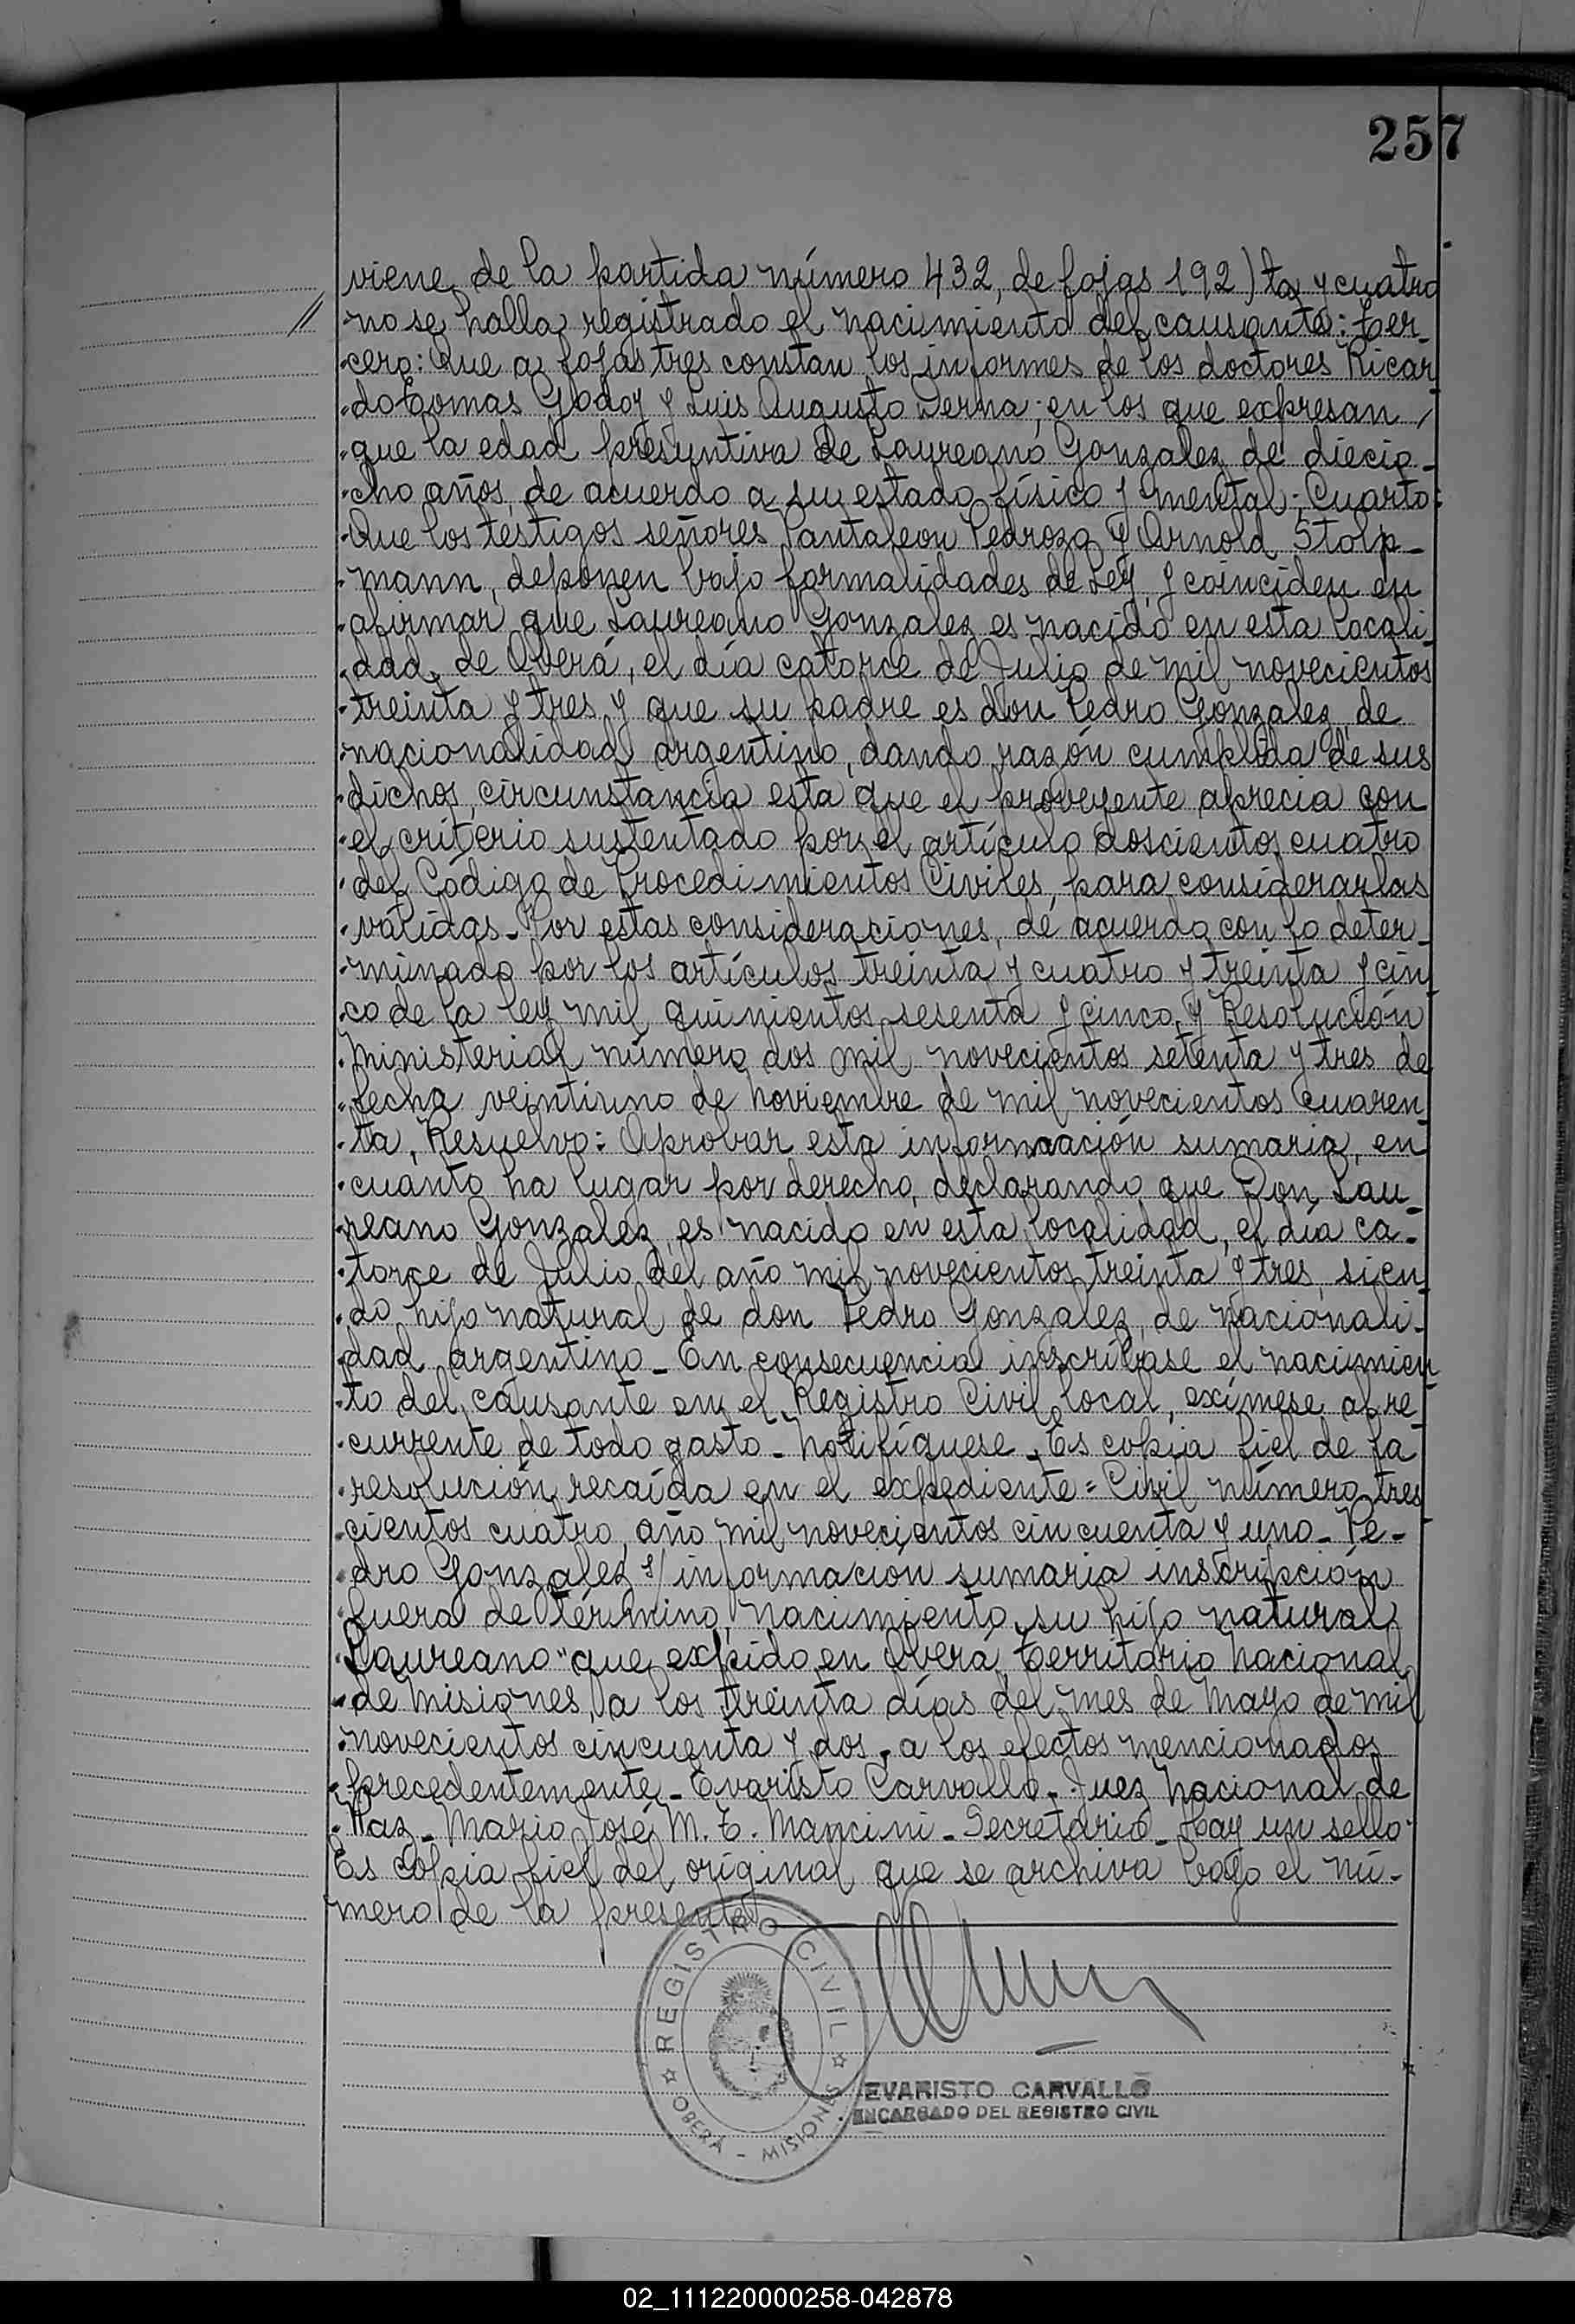 257
viene de la partida número 432, de fojas 192) ta y cuatro
no se halla registrado el nacimiento del causante: Ter-
cero: Que a fojas tres constan los informes de los doctores Ricar
do Tomas Godoy y Luis Augusto Derna; en los que expresan
que la edad presuntiva de Laureano Gonzalez de diecio-
cho años, de acuerdo a su estado físico y mental; Cuarto:
Que los testigos señores Pantaleon Pedrozo y Arnold Stolp-
mann, deponen bajo formalidades de Ley, y coinciden en
afirmar que Laureano Gonzalez es nacido en esta locali-
dad, de Oberá, el día catorce de Julio de mil novecientos
treinta y tres y que su padre es don Pedro Gonzalez, de
nacionalidad argentino, dando razón cumplida de sus
dichos, circunstancia esta que el proveyente aprecia con
el criterio sustentado por el artículo doscientos cuatro
del Código de Procedimientos Civiles, para considerarlas
válidas_ Por estas consideraciones, de acuerdo con lo deter-
minado por los artículos treinta y cuatro y treinta y cin
co de la ley mil quinientos sesenta y cinco y Resolución
Ministerial número dos mil novecientos setenta y tres de
fecha veintiuno de noviembre de mil novecientos cuaren
ta, Resuelvo: Aprobar esta informaación sumaria, en
cuanto ha lugar por derecho, declarando que Don Lau-
reano Gonzalez, es nacido en esta localidad, el día ca-
torce de Julio del año mil novecientos treinta y tres, sien
do hijo natural de don Pedro Gonzalez, de nacionali-
dad argentino_ En consecuencia inscríbase el nacimien
to del causante en el Registro Civil local, exímese al re-
currente de todo gasto_ Notifíquese. Es copia fiel de la
resolución recaída en el expediente = Civil número tres
cientos cuatro, año mil novecientos cincuenta y uno_ Pe-
dro Gonzalez s/ información sumaria inscripción
fuera de término, nacimiento su hijo natural
Laureano" que expido en Oberá, Territorio Nacional
de Misiones, a los treinta días del mes de Mayo de mil
novecientos cincuenta y dos, a los efectos mencionados
precedentemente_ Evaristo Carvallo_ Juez Nacional de
Paz_ Mario José M. T. Mancini_ Secretario_ Hay un sello
Es copia fiel del original que se archiva bajo el nú-
mero de la presente
REGISTRO CIVIL
OBERÁ - MISIONES
EVARISTO CARVALLO
ENCARGADO DEL REGISTRO CIVIL
02_111220000258-042878